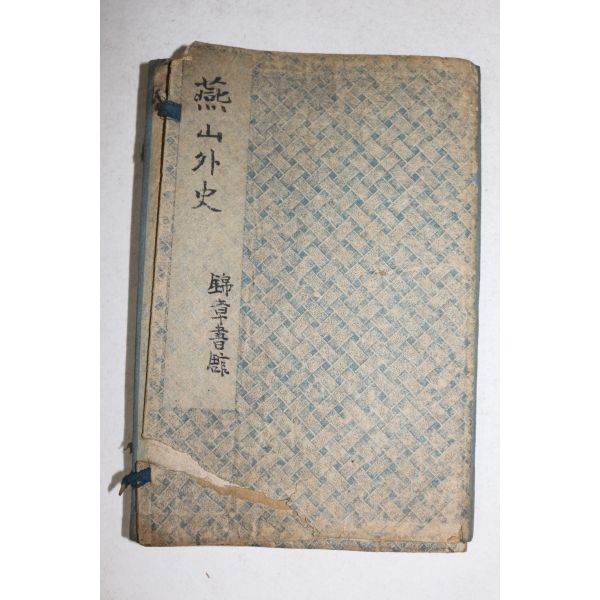 燕山外史
錦章書